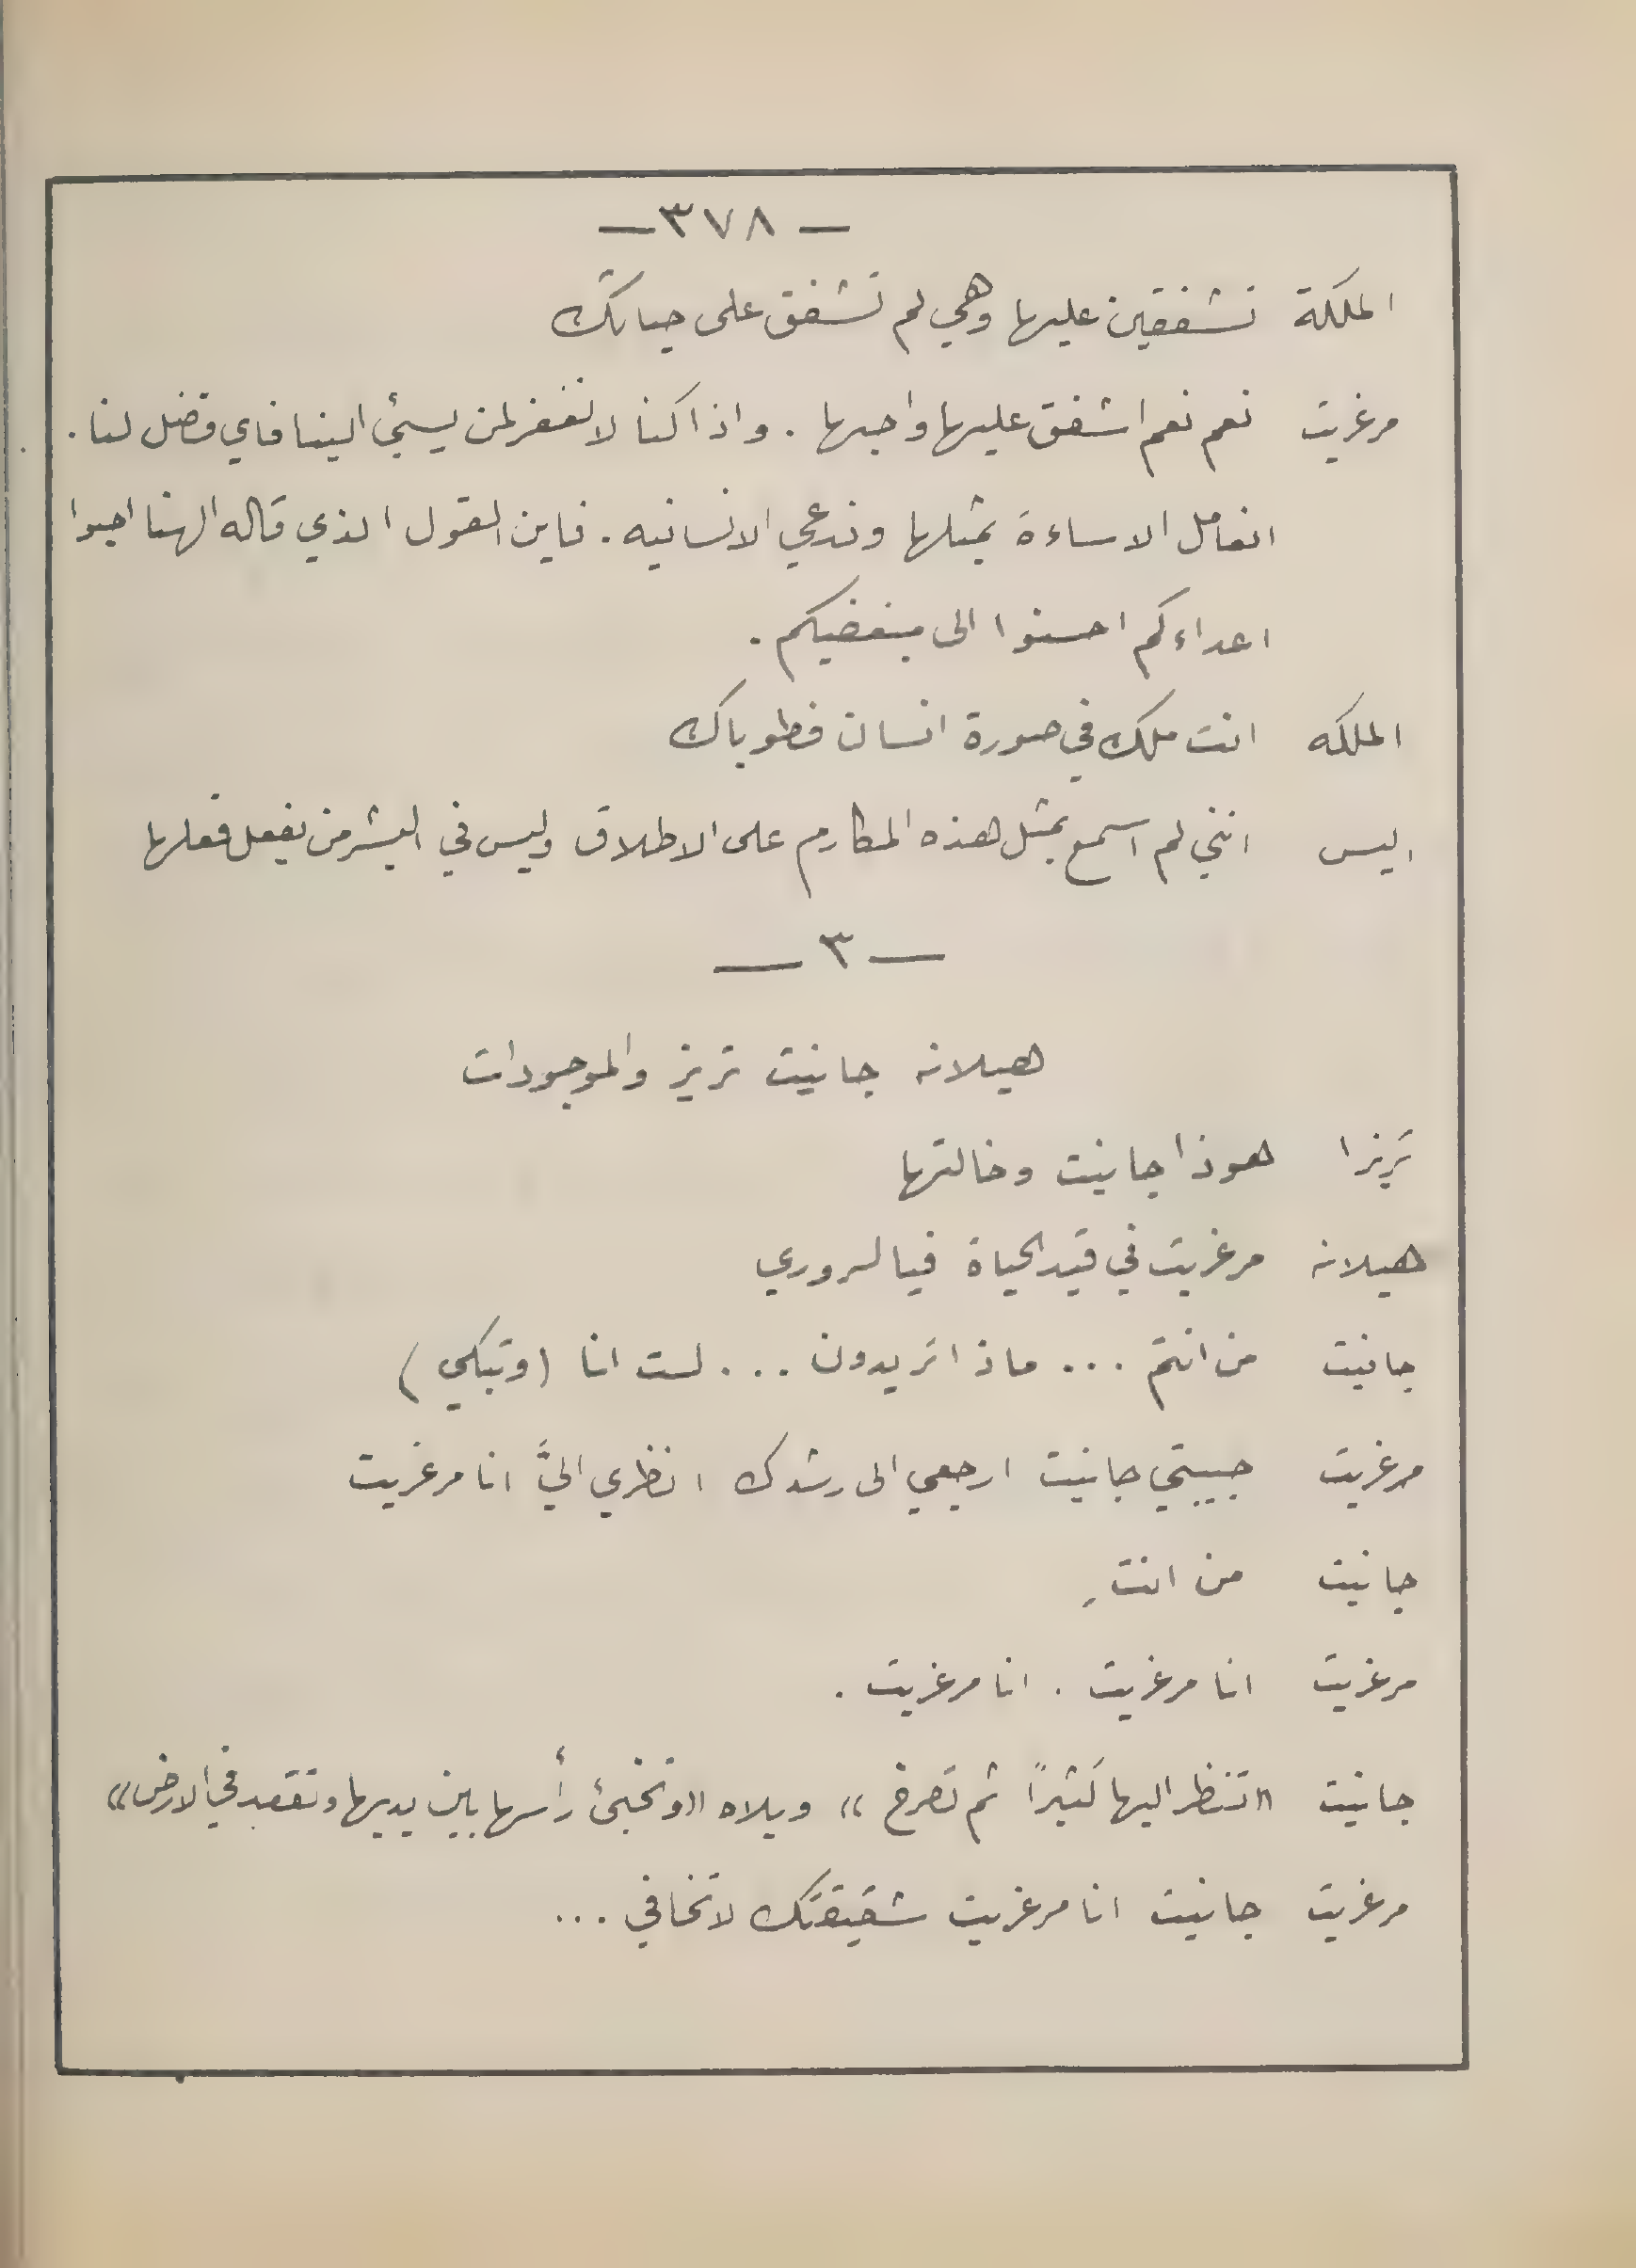 — ٣٧٨ —
الملكة تشفقين عليها وهي لم تشفق على حياتك
مرغريت نعم نعم اشفق عليها واحبها . واذا كنا لا نغفر لمن يسيُ الينا فاي فضل لنا .
انعامل الاساءة بمثلها وندعي الانسانيه . فاين القول الذي قاله الهنا احبوا
اعداءكم احسنوا الى مبغضيكم .
الملكه انت ملك في صورة انسان فطوباك
اليس انني لم اسمع بمثل هذه المكارم على الاطلاق وليس في البشر من يفعل فعلها
— ٣ —
هيلانه جانيت تريز والموجودات
تريزا هوذا جانيت وخالتها
هيلانه مرغريت في قيد الحياة فيا لسروري
جانيت من انتم ... ماذا تريدون ... لست انا (وتبكي)
مرغريت حبيبتي جانيت ارجعي الى رشدك انظري اليَّ انا مرغريت
جانيت من انتِ
مرغريت انا مرغريت . انا مرغريت .
جانيت «تنظر اليها كثيراً ثم تصرخ» ويلاه «وتخبئ رأسها بين يديها وتقعد في الارض»
مرغريت جانيت انا مرغريت شقيقتك لا تخافي ...